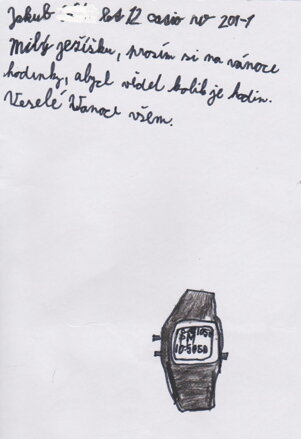 Jakub let 12 casio nv 201-1
Milý ježíšku, prosím si na vánoce
hodinky, abych vědel kolik je hodin.
Veselé Vanoce všem.
10:5050